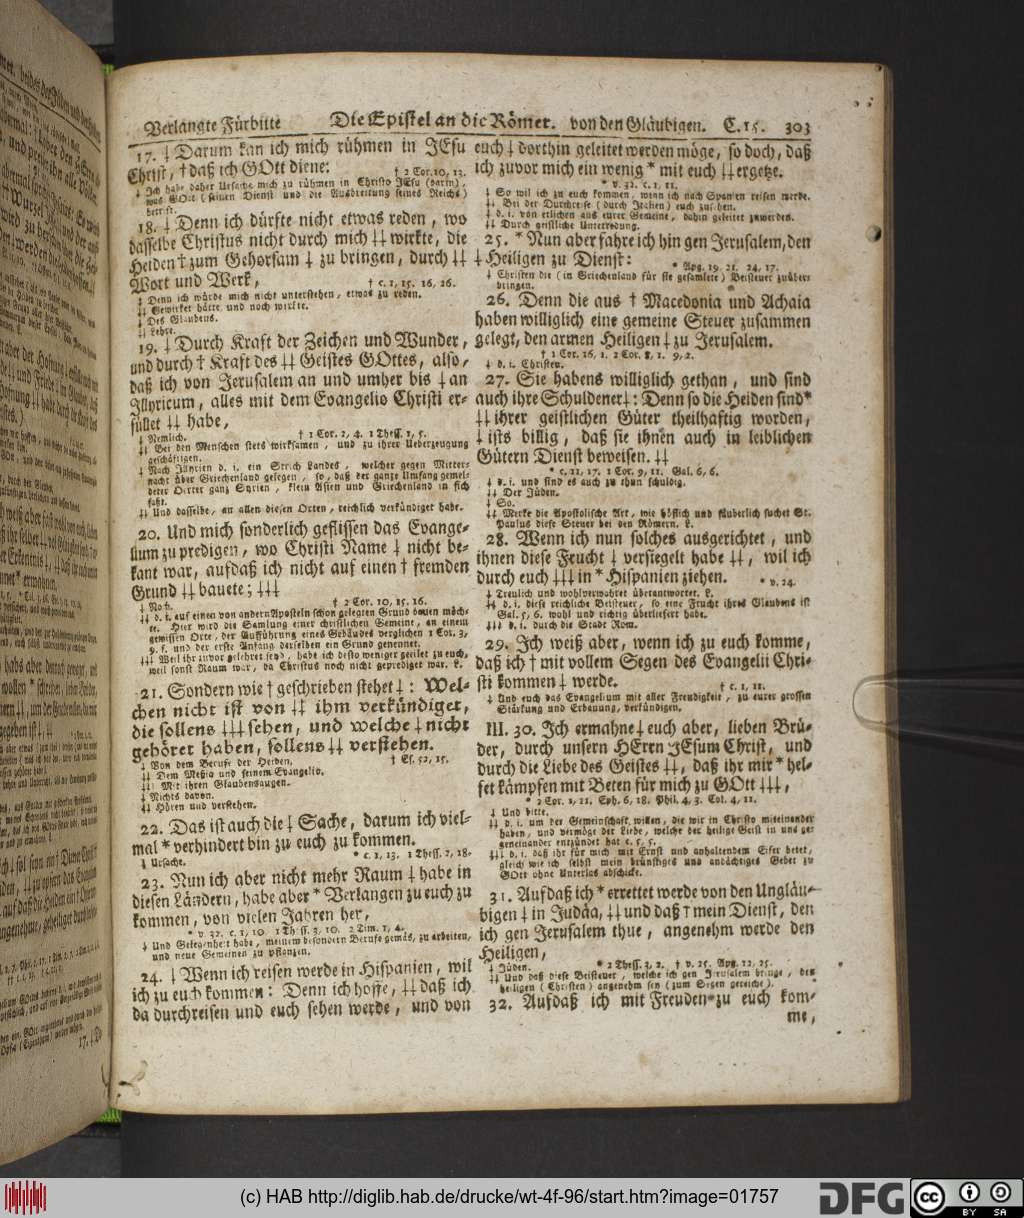 Verlangte Fürbitte Die Epistel an die Römer. von den Gläubigen. C. 15. 303
17. ‡ Darum kan ich mich rühmen in JEsu
Christ, † daß ich GOtt diene: † 2 Cor. 10, 13.
‡ Ich habe daher Ursache mich zu rühmen in Christo JEsu (darin),
was GOtt (seinen Dienst und die Ausbreitung seines Reichs)
betrift.
18. ‡ Denn ich dürfte nicht etwas reden, wo
dasselbe Christus nicht durch mich ‡‡ wirkte, die
Heiden † zum Gehorsam ‡ zu bringen, durch ‡‡
Wort und Werk, † c. 1, 15. 16, 26.
‡ Denn ich würde mich nicht unterstehen, etwas zu reden.
‡‡ Gewirket hätte und noch wirkte.
‡ Des Glaubens.
‡‡ Lehre.
19. ‡ Durch Kraft der Zeichen und Wunder,
und durch † Kraft des ‡‡ Geistes GOttes, also,
daß ich von Jerusalem an und umher bis ‡ an
Illyricum, alles mit dem Evangelio Christi er-
füllet ‡‡ habe,
‡ Nemlich. † 1 Cor. 2, 4. 1 Thess. 1, 5.
‡‡ Bei den Menschen stets wirksamen, und zu ihrer Ueberzeugung
geschäftigen.
‡ Nach Illyrien d. i. ein Strich Landes, welcher gegen Mitter-
nacht über Griechenland gelegen, so, daß der ganze Umfang gemel-
deter Oerter ganz Syrien, klein Asien und Griechenland in sich
faßt.
‡‡ Und dasselbe, an allen diesen Orten, reichlich verkündiget habe.
20. Und mich sonderlich geflissen das Evange-
lium zu predigen, wo Christi Name ‡ nicht be-
kant war, aufdaß ich nicht auf einen † fremden
Grund ‡‡ bauete; ‡‡‡
‡ Noch. † 2 Cor. 10, 15. 16.
‡‡ d. i. auf einen von andern Aposteln schon gelegten Grund bauen möch-
te. Hier wird die Samlung einer christlichen Gemeine, an einem
gewissen Orte, der Aufführung eines Gebäudes verglichen 1 Cor. 3,
9. f. und der erste Anfang derselben ein Grund genennet.
‡‡‡ Weil ihr zuvor gelehret seyd, habe ich desto weniger geeilet zu euch,
weil sonst Raum war, da Christus noch nicht geprediget war. L.
21. Sondern wie † geschrieben stehet ‡: Wel-
chen nicht ist von ‡‡ ihm verkündiget,
die sollens ‡‡‡ sehen, und welche ‡ nicht
gehöret haben, sollens ‡‡ verstehen.
‡ Von dem Berufe der Heiden. † Es. 52, 15.
‡‡ Dem Meßia und seinem Evangelio.
‡‡‡ Mit ihren Glaubensaugen.
‡ Nichts davon.
‡‡ Hören und verstehen.
22. Das ist auch die ‡ Sache, darum ich viel-
mal * verhindert bin zu euch zu kommen.
‡ Ursache. * c. 1, 13. 1 Thess. 2, 18.
23. Nun ich aber nicht mehr Raum ‡ habe in
diesen Ländern, habe aber * Verlangen zu euch zu
kommen, von vielen Jahren her,
* v. 32. c. 1, 10. 1 Thess. 3, 10. 2 Tim. 1, 4.
‡ Und Gelegenheit habe, meinem besondern Berufe gemäs, zu arbeiten,
und neue Gemeinen zu pflanzen.
24. ‡ Wenn ich reisen werde in Hispanien, wil
ich zu euch kommen: Denn ich hoffe, ‡‡ daß ich
da durchreisen und euch sehen werde, und von
euch ‡ dorthin geleitet werden möge, so doch, daß
ich zuvor mich ein wenig * mit euch ‡‡ ergetze.
* v. 32. c. 1, 11.
‡ So wil ich zu euch kommen, wenn ich nach Spanien reisen werde.
‡‡ Bei der Durchreise (durch Italien) euch zu sehen.
‡ d. i. von etlichen aus eurer Gemeine, dahin geleitet zu werden.
‡‡ Durch geistliche Unterredung.
25. * Nun aber fahre ich hin gen Jerusalem, den
‡ Heiligen zu Dienst: * Apg. 19, 21. 24, 17.
‡ Christen die (in Griechenland für sie gesamlete) Beisteuer zu über-
bringen.
26. Denn die aus † Macedonia und Achaia
haben williglich eine gemeine Steuer zusammen
gelegt, den armen Heiligen ‡ zu Jerusalem.
† 1 Cor. 16, 1. 2 Cor. 8, 1. 9, 2.
‡ d. i. Christen.
27. Sie habens williglich gethan, und sind
auch ihre Schuldener ‡: Denn so die Heiden sind *
‡‡ ihrer geistlichen Güter theilhaftig worden,
‡ ists billig, daß sie ihnen auch in leiblichen
Gütern Dienst beweisen. ‡‡
* c. 11, 17. 1 Cor. 9, 11. Gal. 6, 6.
‡ d. i. und sind es auch zu thun schuldig.
‡‡ Der Jüden.
‡ So.
‡‡ Merke die Apostolische Art, wie höflich und säuberlich suchet St.
Paulus diese Steuer bei den Römern. L.
28. Wenn ich nun solches ausgerichtet, und
ihnen diese Frucht ‡ versiegelt habe ‡‡, wil ich
durch euch ‡‡‡ in * Hispanien ziehen. * v. 24.
‡ Treulich und wohlverwahret überantwortet. L.
‡‡ d. i. diese reichliche Beisteuer, so eine Frucht ihres Glaubens ist
Gal. 5, 6. wohl und richtig überliefert habe.
‡‡‡ d. i. durch die Stadt Rom.
29. Ich weiß aber, wenn ich zu euch komme,
daß ich † mit vollem Segen des Evangelii Chri-
sti kommen ‡ werde. † c. 1, 11.
‡ Und euch das Evangelium mit aller Freudigkeit, zu eurer grossen
Stärkung und Erbauung, verkündigen.
III. 30. Ich ermahne ‡ euch aber, lieben Brü-
der, durch unsern HErrn JEsum Christ, und
durch die Liebe des Geistes ‡‡, daß ihr mir * hel-
fet kämpfen mit Beten für mich zu GOtt ‡‡‡,
* 2 Cor. 1, 11. Eph. 6, 18. Phil. 4, 3. Col. 4, 12.
‡ Und bitte.
‡‡ d. i. um der Gemeinschaft willen, die wir in Christo miteinander
haben, und vermöge der Liebe, welche der heilige Geist in uns ge-
geneinander entzündet hat c. 5, 5.
‡‡‡ d. i. daß ihr für mich mit Ernst und anhaltendem Eifer betet,
gleich wie ich selbst mein brünstiges und andächtiges Gebet zu
GOtt ohne Unterlas abschicke.
31. Aufdaß ich * errettet werde von den Ungläu-
bigen ‡ in Judäa, ‡‡ und daß † mein Dienst, den
ich gen Jerusalem thue, angenehm werde den
Heiligen,
‡ Jüden. * 2 Thess. 3, 2. † v. 25. Apg. 12, 25.
‡‡ Und daß diese Beisteuer, welche ich gen Jerusalem bringe, den
heiligen (Christen) angenehm sey (zum Segen gereiche).
32. Aufdaß ich mit Freuden * zu euch kom-
me,
(c) HAB http://diglib.hab.de/drucke/wt-4f-96/start.htm?image=01757
DFG
cc BY SA